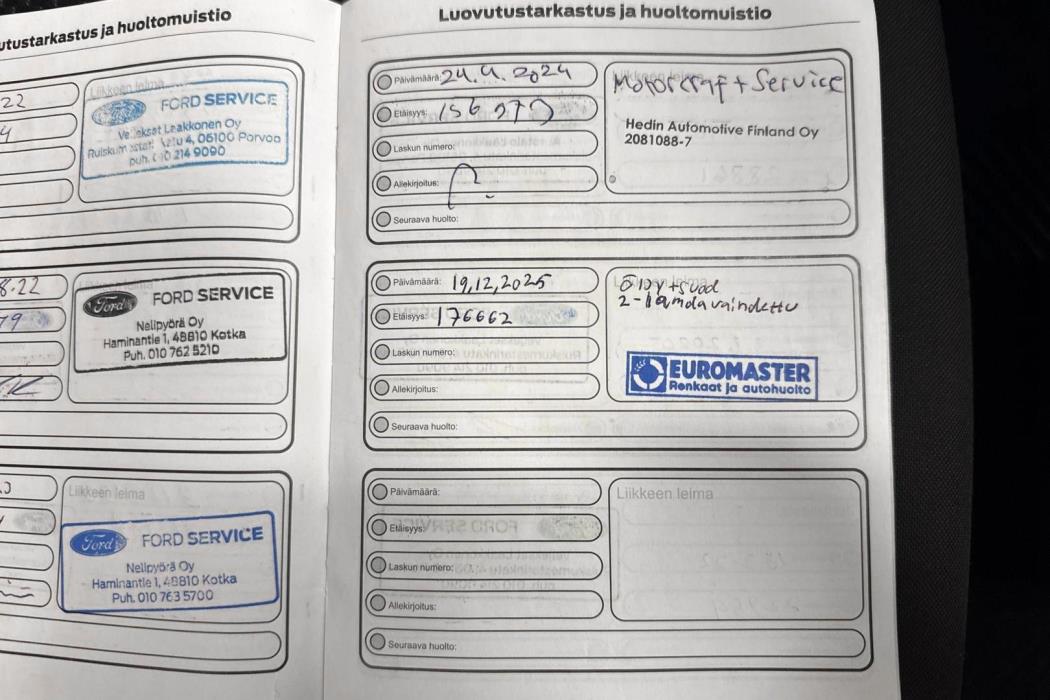 utustarkastus ja huoltomuistio
22
Liikkeen leima
FORD SERVICE
Laakkonen Oy
4, 06100 Porvoo
puh. 010 214 9090
8.22
79
Ford
FORD SERVICE
Nelipyörä Oy
Haminantie 1, 48810 Kotka
Puh. 010 762 5210
Liikkeen leima
Ford
FORD SERVICE
Nelipyörä Oy
Haminantie 1, 48810 Kotka
Puh. 010 763 5700
Luovutustarkastus ja huoltomuistio
Päivämäärä: 24.4.2024
Etäisyys: 156 979
Laskun numero:
Allekirjoitus:
Seuraava huolto:
Motorcraft + Service
Hedin Automotive Finland Oy
2081088-7
Päivämäärä: 19,12,2025
Etäisyys: 176662
Laskun numero:
Allekirjoitus:
Seuraava huolto:
Liikkeen leima
Öljy + suod
2-lamda vaihdettu
EUROMASTER
Renkaat ja autohuolto
Päivämäärä:
Etäisyys:
Laskun numero:
Allekirjoitus:
Seuraava huolto:
Liikkeen leima